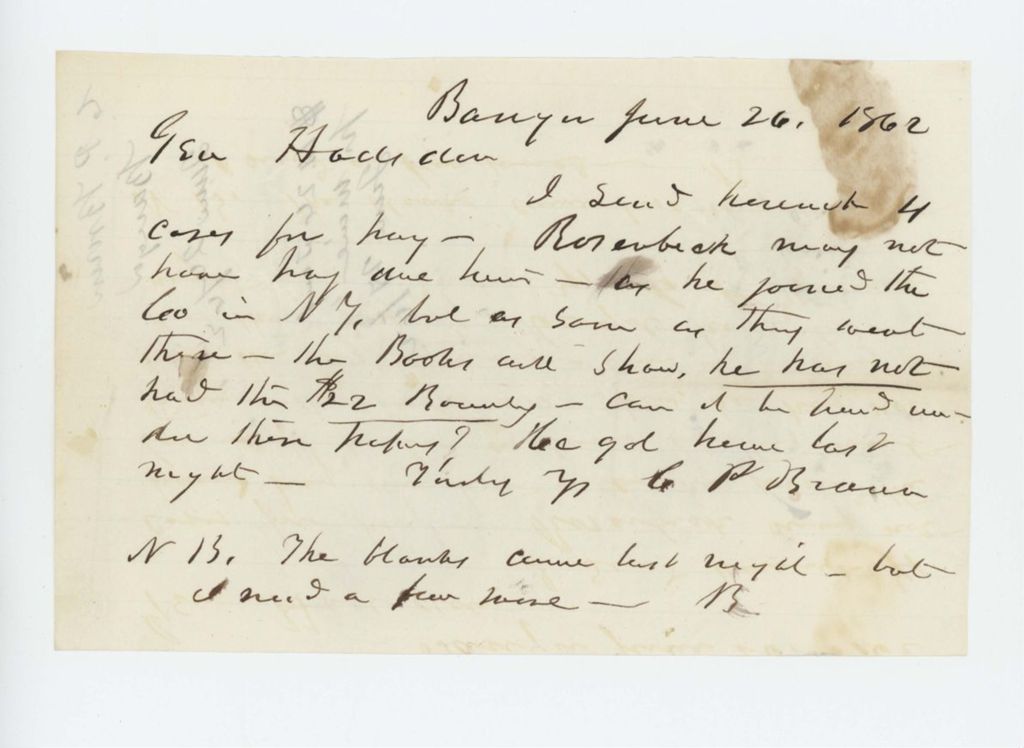 Bangor June 26. 1862
Gen Hodsdon
I send herewith 4
cases for pay – Rosenbeck may not
have pay due him – as he joined the
Co in N Y, but as soon as they went
there – the Books will show, he has not
had the $22 Bounty – can it be had un-
der these ? He got here last
night – Truly Yrs C P Brown
N B. The blanks came last night – but
I need a few more – B